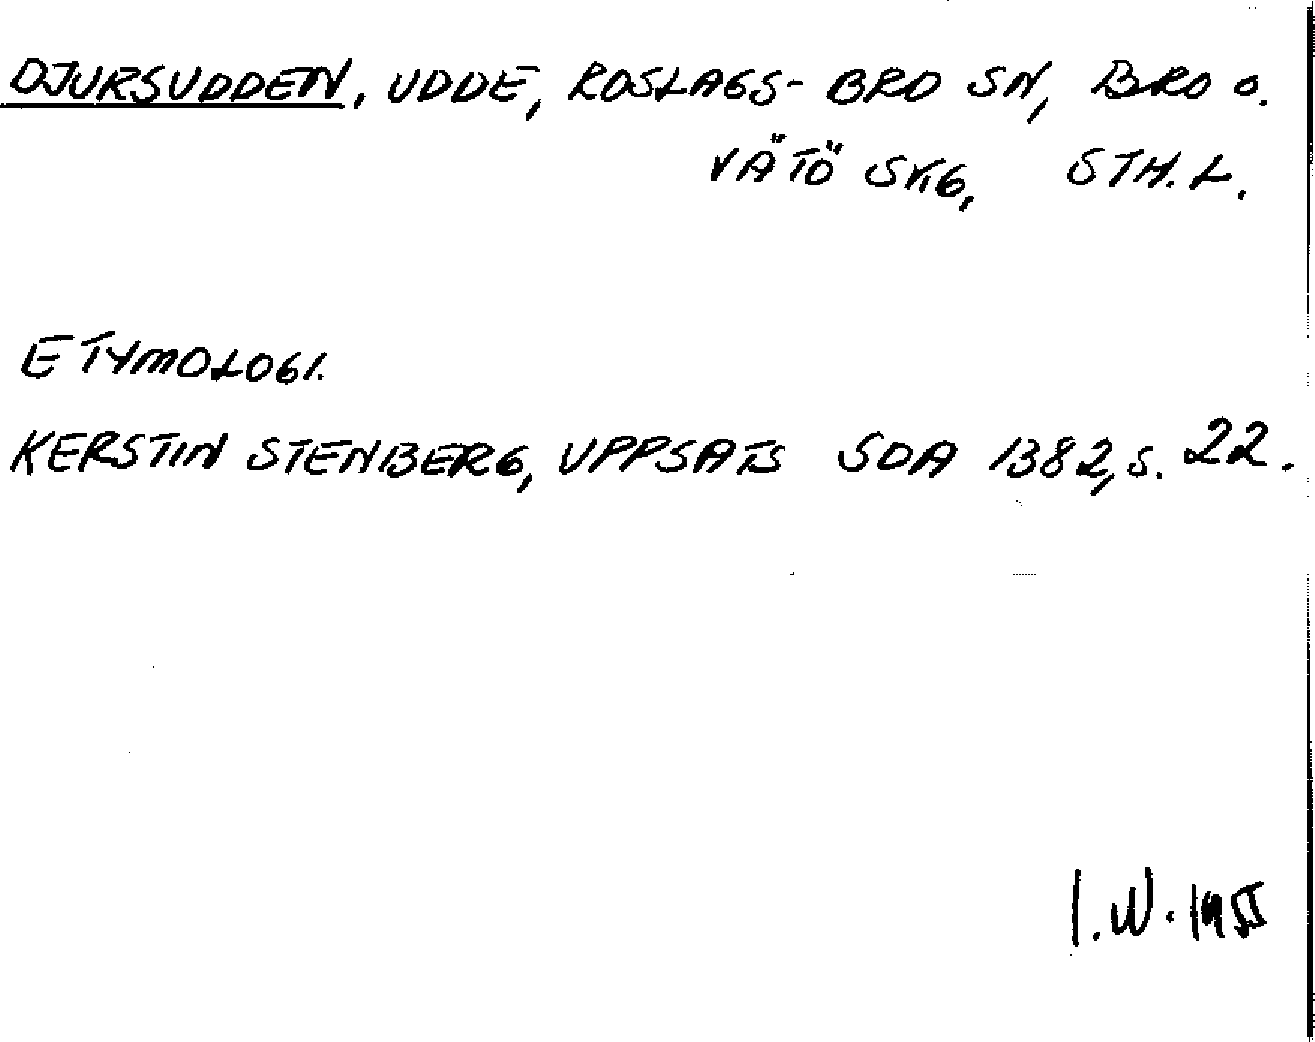 DJURSUDDEN, UDDE, ROSLAGS-BRO SN, BRO o.
VÄTÖ SKG, STH.L.
ETYMOLOGI.
KERSTIN STENBERG, UPPSATS SOA 1382, S. 22.
I.W. 1955